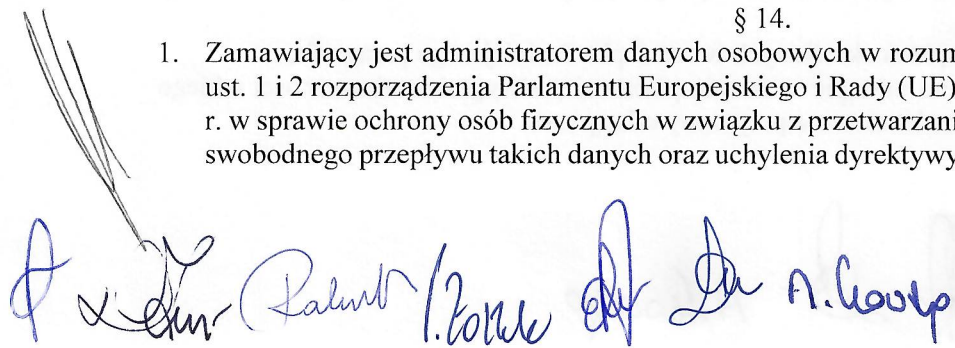 § 14.
1. Zamawiający jest administratorem danych osobowych w rozum
ust. 1 i 2 rozporządzenia Parlamentu Europejskiego i Rady (UE)
r. w sprawie ochrony osób fizycznych w związku z przetwarzani
swobodnego przepływu takich danych oraz uchylenia dyrektywy